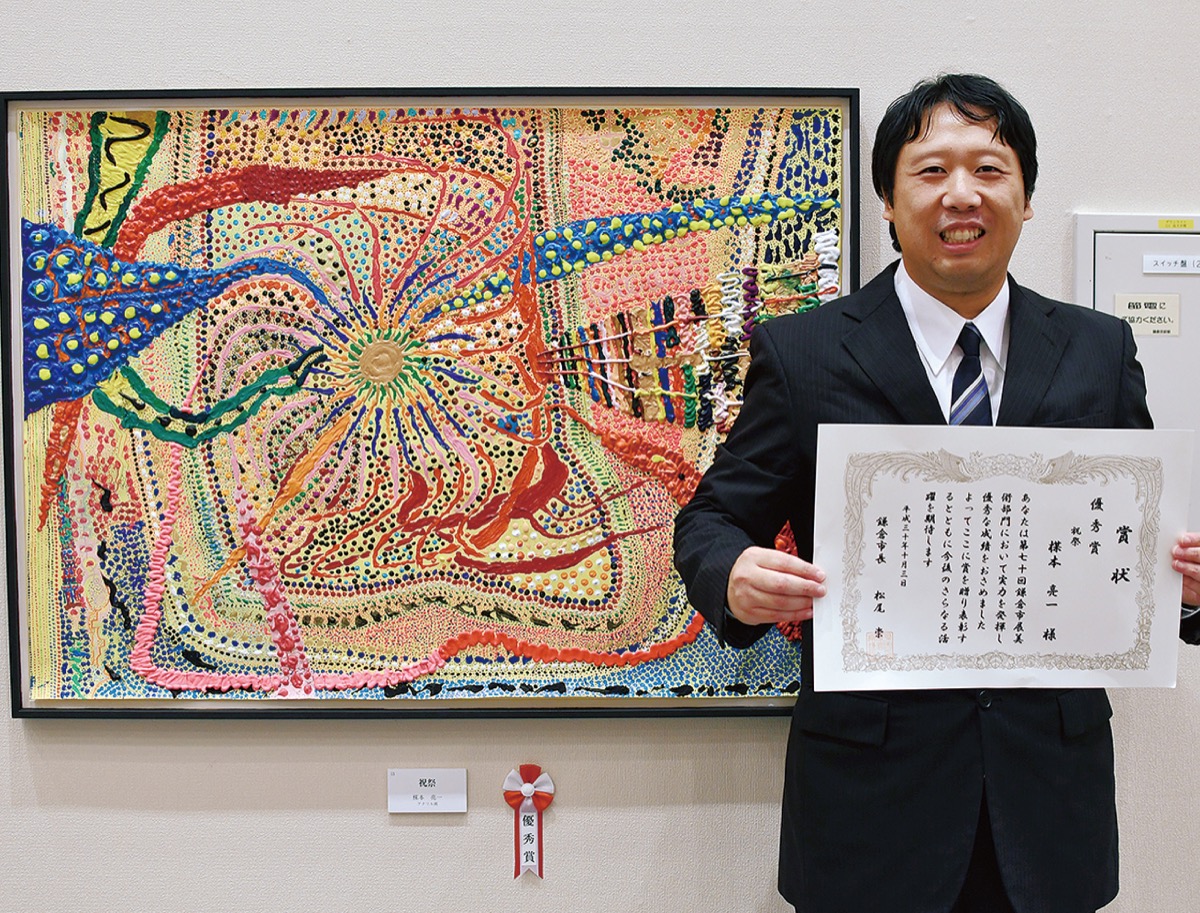 賞状
優秀賞
祝祭
様
あなたは第七十回鎌倉市展美
術部門において実力を発揮し
優秀な成績をおさめました
よってここに賞を贈り表彰す
るとともに今後のさらなる活
躍を期待します
平成三十年十月三日
鎌倉市長 松尾 崇
祝祭
優秀賞
スイッチ盤(2
ご協力ください。